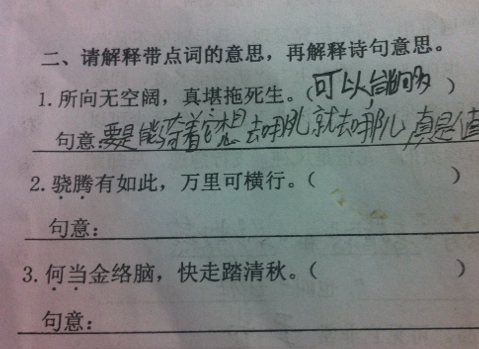 二、请解释带点词的意思，再解释诗句意思。
1.所向无空阔，真堪拖死生。(可以,能够)
句意:要是能骑着它想去哪儿就去哪儿,真是值
2.骁腾有如此，万里可横行。( )
句意:
3.何当金络脑，快走踏清秋。( )
句意: